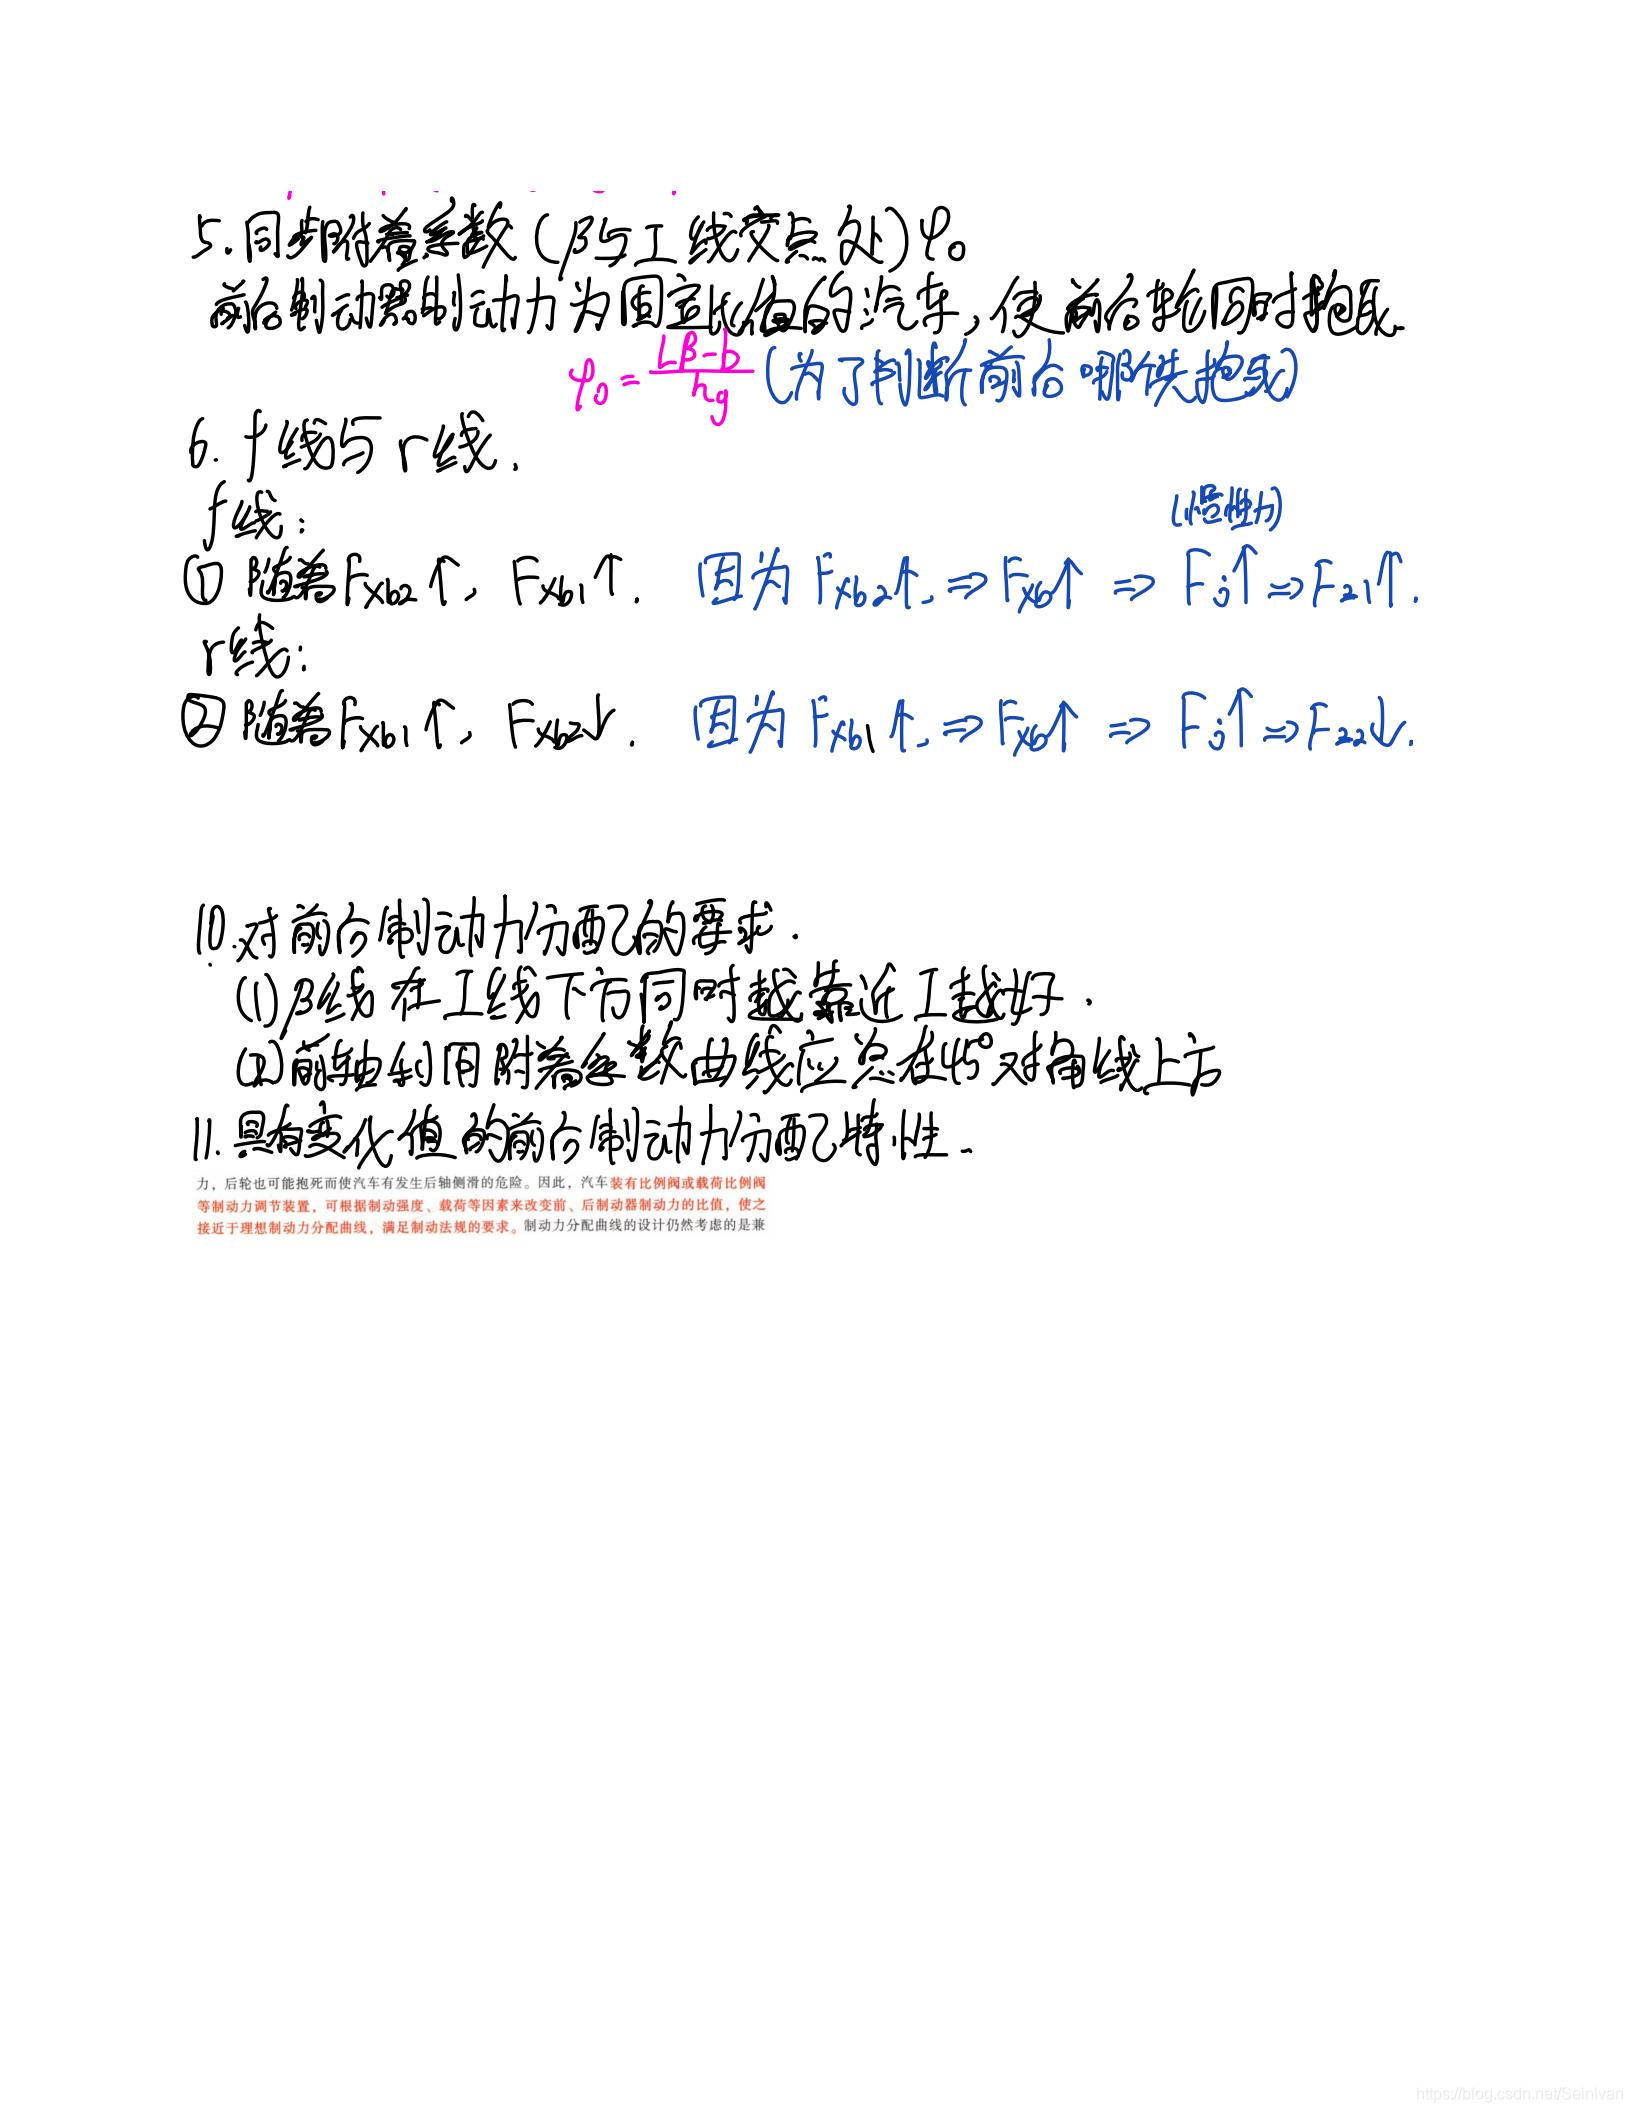 5.同步附着系数(β与I线交点处)φ₀
前后制动器制动力为固定比值的汽车,使前后轮同时抱死.
φ₀=(Lβ-b)/hg (为了判断前后哪个先抱死)
6. f线与r线.
f线:
(惯性力)
① 随着Fxb2↑, Fxb1↑. 因为Fxb2↑,⇒Fxb↑ ⇒ Fj↑⇒Fz1↑.
r线:
② 随着Fxb1↑, Fxb2↓. 因为Fxb1↑,⇒Fxb↑ ⇒ Fj↑⇒Fz2↓.
10.对前后制动力分配的要求.
(1)β线在I线下方同时越靠近I越好.
(2)前轴利用附着系数曲线应总在45°对角线上方
11.具有变化值的前后制动力分配特性.
力，后轮也可能抱死而使汽车有发生后轴侧滑的危险。因此，汽车装有比例阀或载荷比例阀
等制动力调节装置，可根据制动强度、载荷等因素来改变前、后制动器制动力的比值，使之
接近于理想制动力分配曲线，满足制动法规的要求。制动力分配曲线的设计仍然考虑的是兼
https://blog.csdn.net/SeinIvan